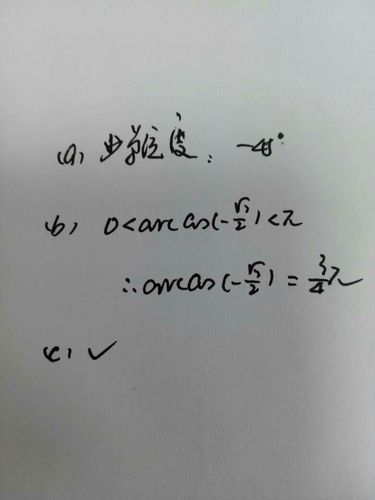 (a) 少单位度: -45°
(b) 0<arccos(-√2/2)<π
∴arccos(-√2/2) = 3/4π
(c) ✓